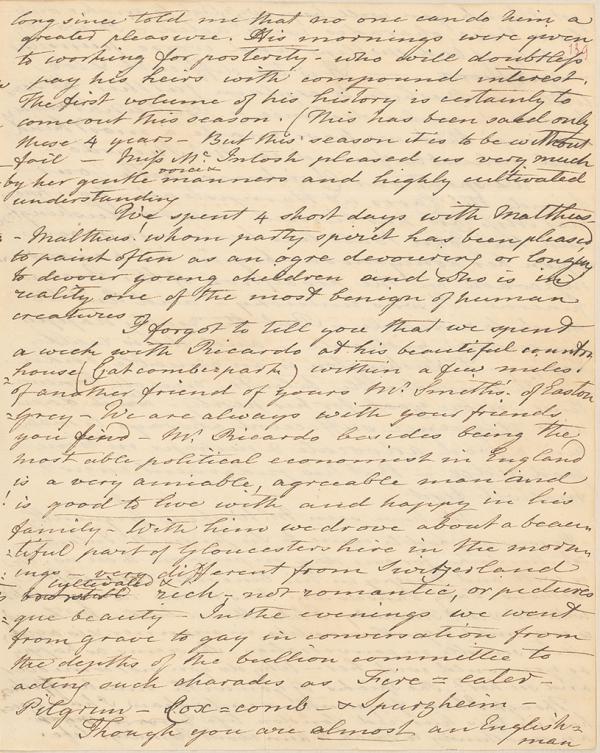 long since told me that no one can do him a
greater pleasure. His mornings were given
139
to working for posterity - who will doubtless
pay his heirs with compound interest.
The first volume of his history is certainly to
come out this season. (This has been said only
these 4 years - But this season it is to be without
fail - Miss Mc. Intosh pleased us very much
by her gentle voice & manners and highly cultivated
understanding
We spent 4 short days with Malthus
- Malthus! whom party spirit has been pleased
to paint often as an ogre devouring or longing
to devour young children and who is in
reality one of the most benign of human
creatures
I forgot to tell you that we spent
a week with Ricardo at his beautiful country
house (Gatcombe park) within a few miles
of another friend of yours Mr. Smith's. of Easton
=Grey - We are always with your friends
you find - Mr. Ricardo besides being the
most able political economist in England
is a very amiable, agreeable man and
is good to live with and happy in his
family - With him we drove about a beau=
=tiful part of Gloucestershire in the morn=
=ings - very different from Switzerland
cultivated &
rich - not romantic, or pictures
=que beauty - In the evenings we went
from grave to gay in conversation from
the depths of the bullion committee to
acting such charades as Fire=eater -
Pilgrim - Cox=comb - & Spurzheim -
Though you are almost an English=
man